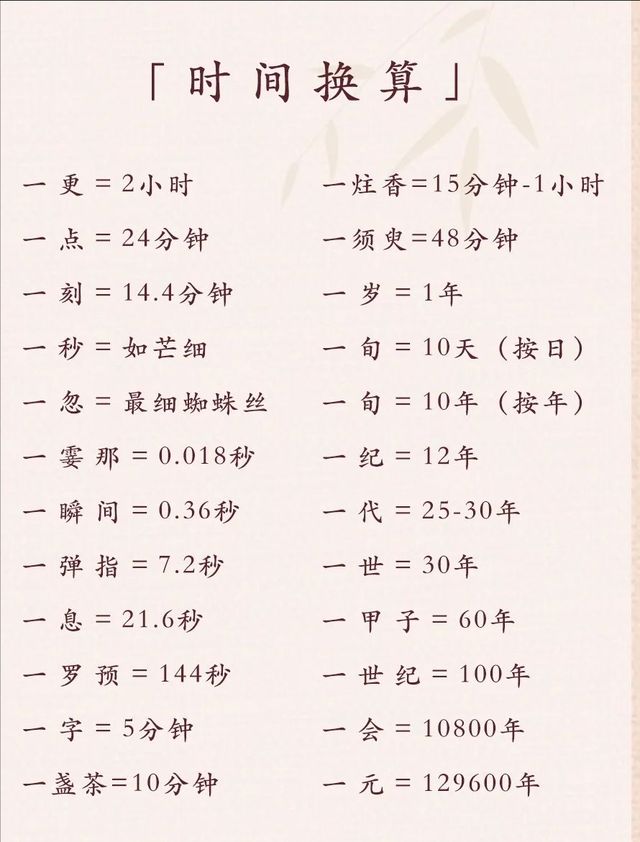 「时间换算」
一更=2小时
一点=24分钟
一刻=14.4分钟
一秒=如芒细
一忽=最细蜘蛛丝
一霎那=0.018秒
一瞬间=0.36秒
一弹指=7.2秒
一息=21.6秒
一罗预=144秒
一字=5分钟
一盏茶=10分钟
一炷香=15分钟-1小时
一须臾=48分钟
一岁=1年
一旬=10天（按日）
一旬=10年（按年）
一纪=12年
一代=25-30年
一世=30年
一甲子=60年
一世纪=100年
一会=10800年
一元=129600年